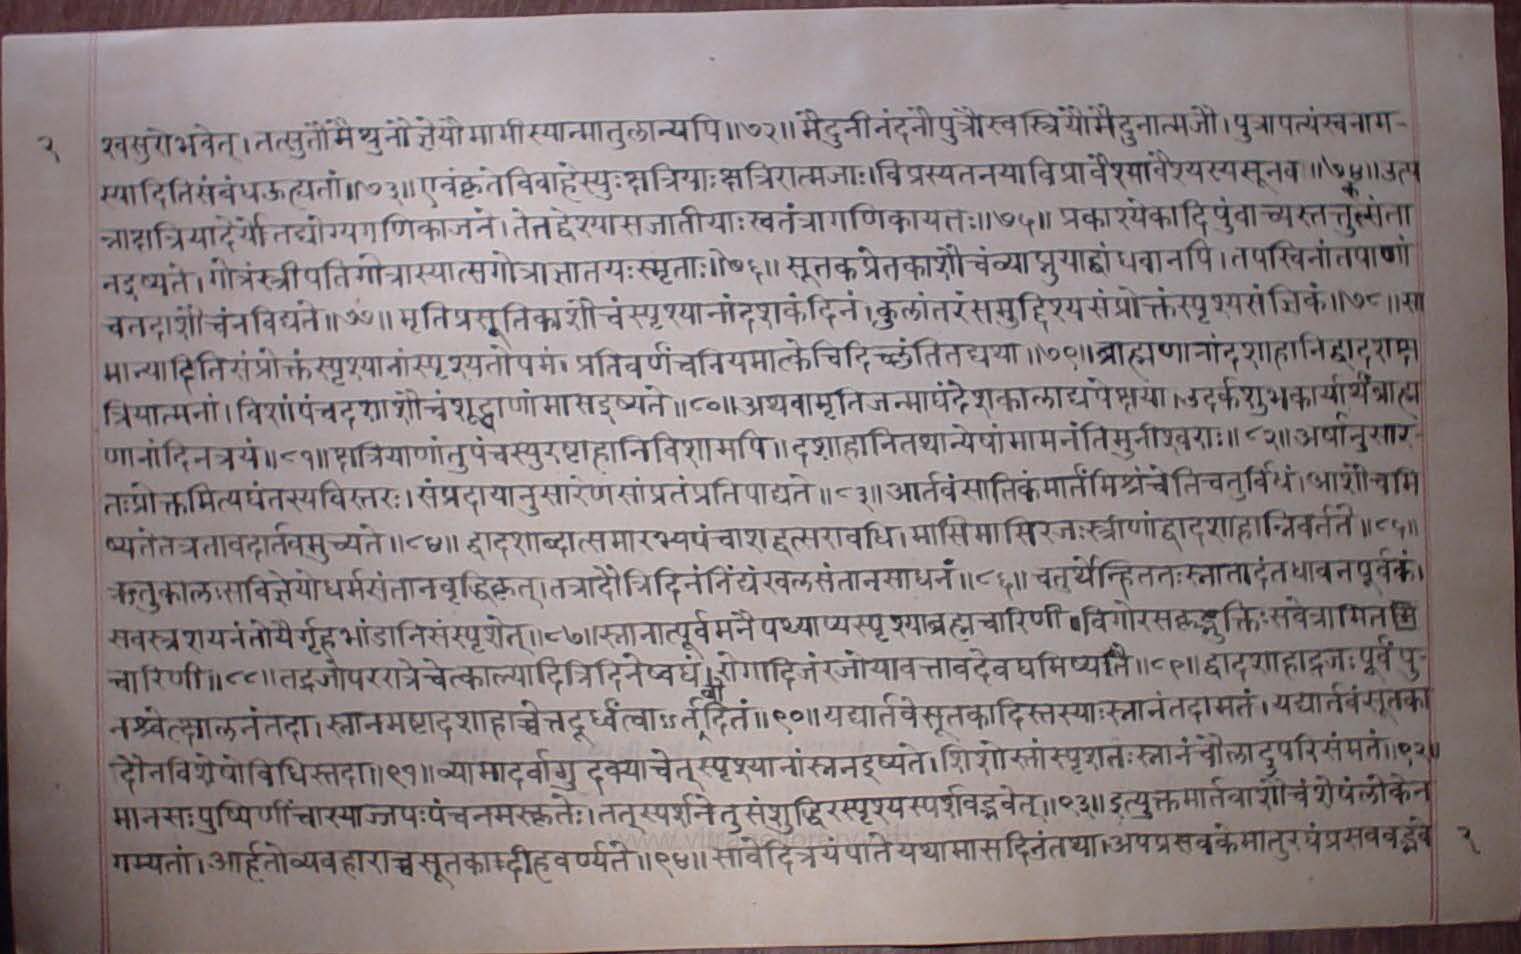 श्वसुरोभवेत्।तत्सुतौमैथुनौज्ञेयौमामीस्यान्मातुलान्यपि॥७२॥मैदुनीनंदनौपुत्रौस्वस्त्रियौमैदुनात्मजौ।पुत्रापत्यंस्वनाग-
स्यादितिसंबंधऊह्यतां॥७३॥एवंकृतेविवाहेस्युःक्षत्रियाःक्षत्रिरात्मजाः।विप्रस्यतनयाविप्रावैश्यावैश्यस्यसूनव॥७४॥उत्प
न्नाक्षत्रियादेर्योतद्योग्यगणिकाजनं।तेतद्वेश्यासजातीयाःस्वतंत्रागणिकायतः॥७५॥प्रकाश्येकादिपुंवाच्यस्तत्तुल्संता
नइष्यते।गोत्रंस्त्रीपतिगोत्रास्यात्सगोत्राज्ञातयःस्मृताः॥७६॥सूतकप्रेतकाशौचंव्याप्नुयाद्बांधवानपि।तपस्विनांतपाणां
चतदाशौचंनविद्यते॥७७॥मृतिप्रसूतिकाशौचंस्पृश्यानांदशकंदिनं।कुलांतरंसमुद्दिश्यसंप्रोक्तंस्पृश्यसंज्ञिकं॥७८॥सा
मान्यादितिसंप्रोक्तंस्पृश्यानांस्पृश्यतोपमं।प्रतिवर्णंचनियमात्केचिदिच्छंतितद्यथा॥७९॥ब्राह्मणानांदशाहानिद्वादशक्ष
त्रियात्मनां।विशांपंचदशाशौचंशूद्राणांमासइष्यते॥८०॥अथवामृतिजन्माघंदेशकालाद्यपेक्षया।उदर्कशुभकार्यार्थंब्राह्म
णानांदिनत्रयं॥८१॥क्षत्रियाणांतुपंचस्युरष्टाहानिविशामपि॥दशाहानितथान्येषांमामनंतिमुनीश्वराः॥८२॥अर्षानुसार-
तःप्रोक्तमित्यघंतस्यविस्तरः।संप्रदायानुसारेणसांप्रतंप्रतिपाद्यते॥८३॥आर्तवंसातिकंमार्तंमिश्रंचेतिचतुर्विधं।आशौचमि
ष्यतेतत्रतावदार्तवमुच्यते॥८४॥द्वादशाब्दात्समारभ्यपंचाशद्वत्सरावधि।मासिमासिरजःस्त्रीणांद्वादशाहान्निवर्तते॥८५॥
ऋतुकालःसविज्ञेयोधर्मसंतानवृद्धिकृत्।तत्रादौत्रिदिनंनिंद्यंखलसंतानसाधनं॥८६॥चतुर्थेन्हिततःस्नातादंतधावनपूर्वकं।
सवस्त्रशयनंतोयैर्गृहभांडानिसंस्पृशेत्॥८७॥स्नानात्पूर्वमनैपथ्याप्यस्पृश्याब्रह्मचारिणी।विगोरसकृद्भुक्तिःसवेत्रामित
चारिणी॥८८॥तद्रजोपररात्रेचेत्काल्यादित्रिदिनेष्वघं।रोगादिजंरजोयावत्तावदेवघमिष्यते॥८९॥द्वादशाहाद्रजःपूर्वंपु-
नश्चेत्क्षालनंतदा।स्नानमष्टादशाहाच्चेत्तदूर्ध्वंत्वाऽर्तवोदितं॥९०॥यद्यार्तवेसूतकादिस्तस्याःस्नानंतदामतं।यद्यार्तवंसूतका
दौनविशेषोविधिस्तदा॥९१॥व्यामादर्वागुदक्याचेत्स्पृश्यानांस्नानइष्यते।शिशोस्तांस्पृशतःस्नानंचौलादुपरिसंमतं॥९२॥
मानसःपुष्पिणीचास्याज्जपःपंचनमस्कृतेः।तत्स्पर्शनेतुसंशुद्धिरस्पृश्यस्पर्शवद्भवेत्॥९३॥इत्युक्तमार्तवाशौचंशेषंलोकेन
गम्यतां।आर्हतोव्यवहाराच्चसूतकाद्दीहवर्ण्यते॥९४॥सावेदित्रयंपातेयथामासदिनंतथा।अपप्रसवकेमातुरघंप्रसववद्भवे